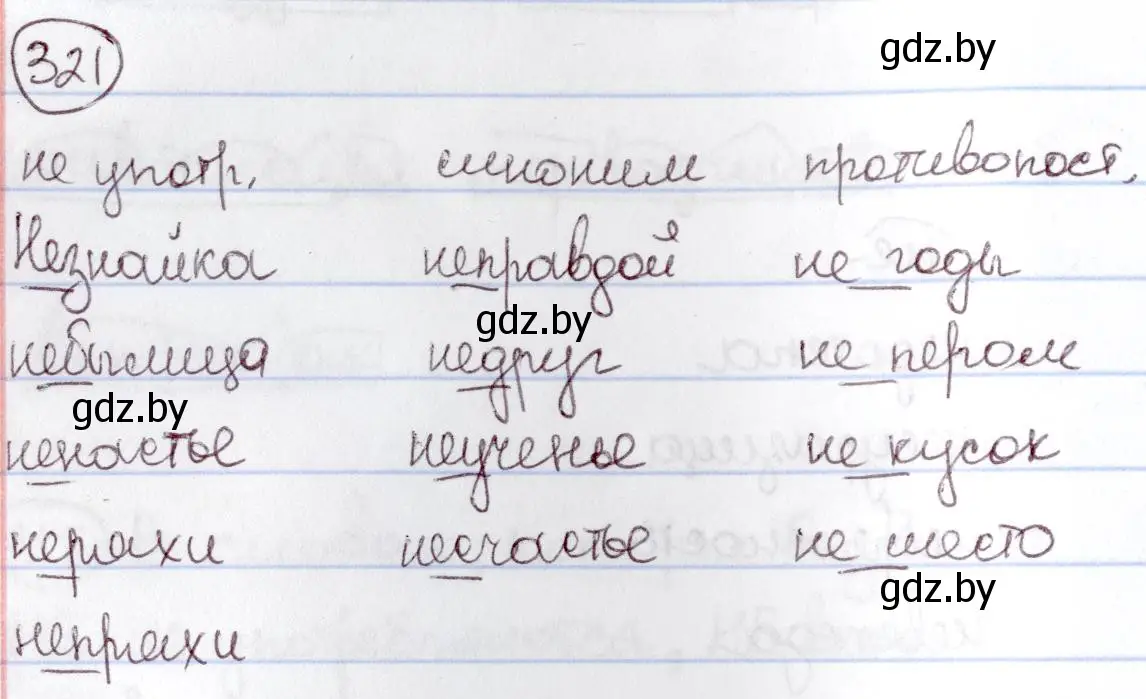 321
gdz.by
не употр. синоним противопост.
Незнайка неправдой не годы
gdz.by
небылица недруг не пером
gdz.by
ненастье неученье не кусок
неряхи несчастье не место
gdz.by
непряхи